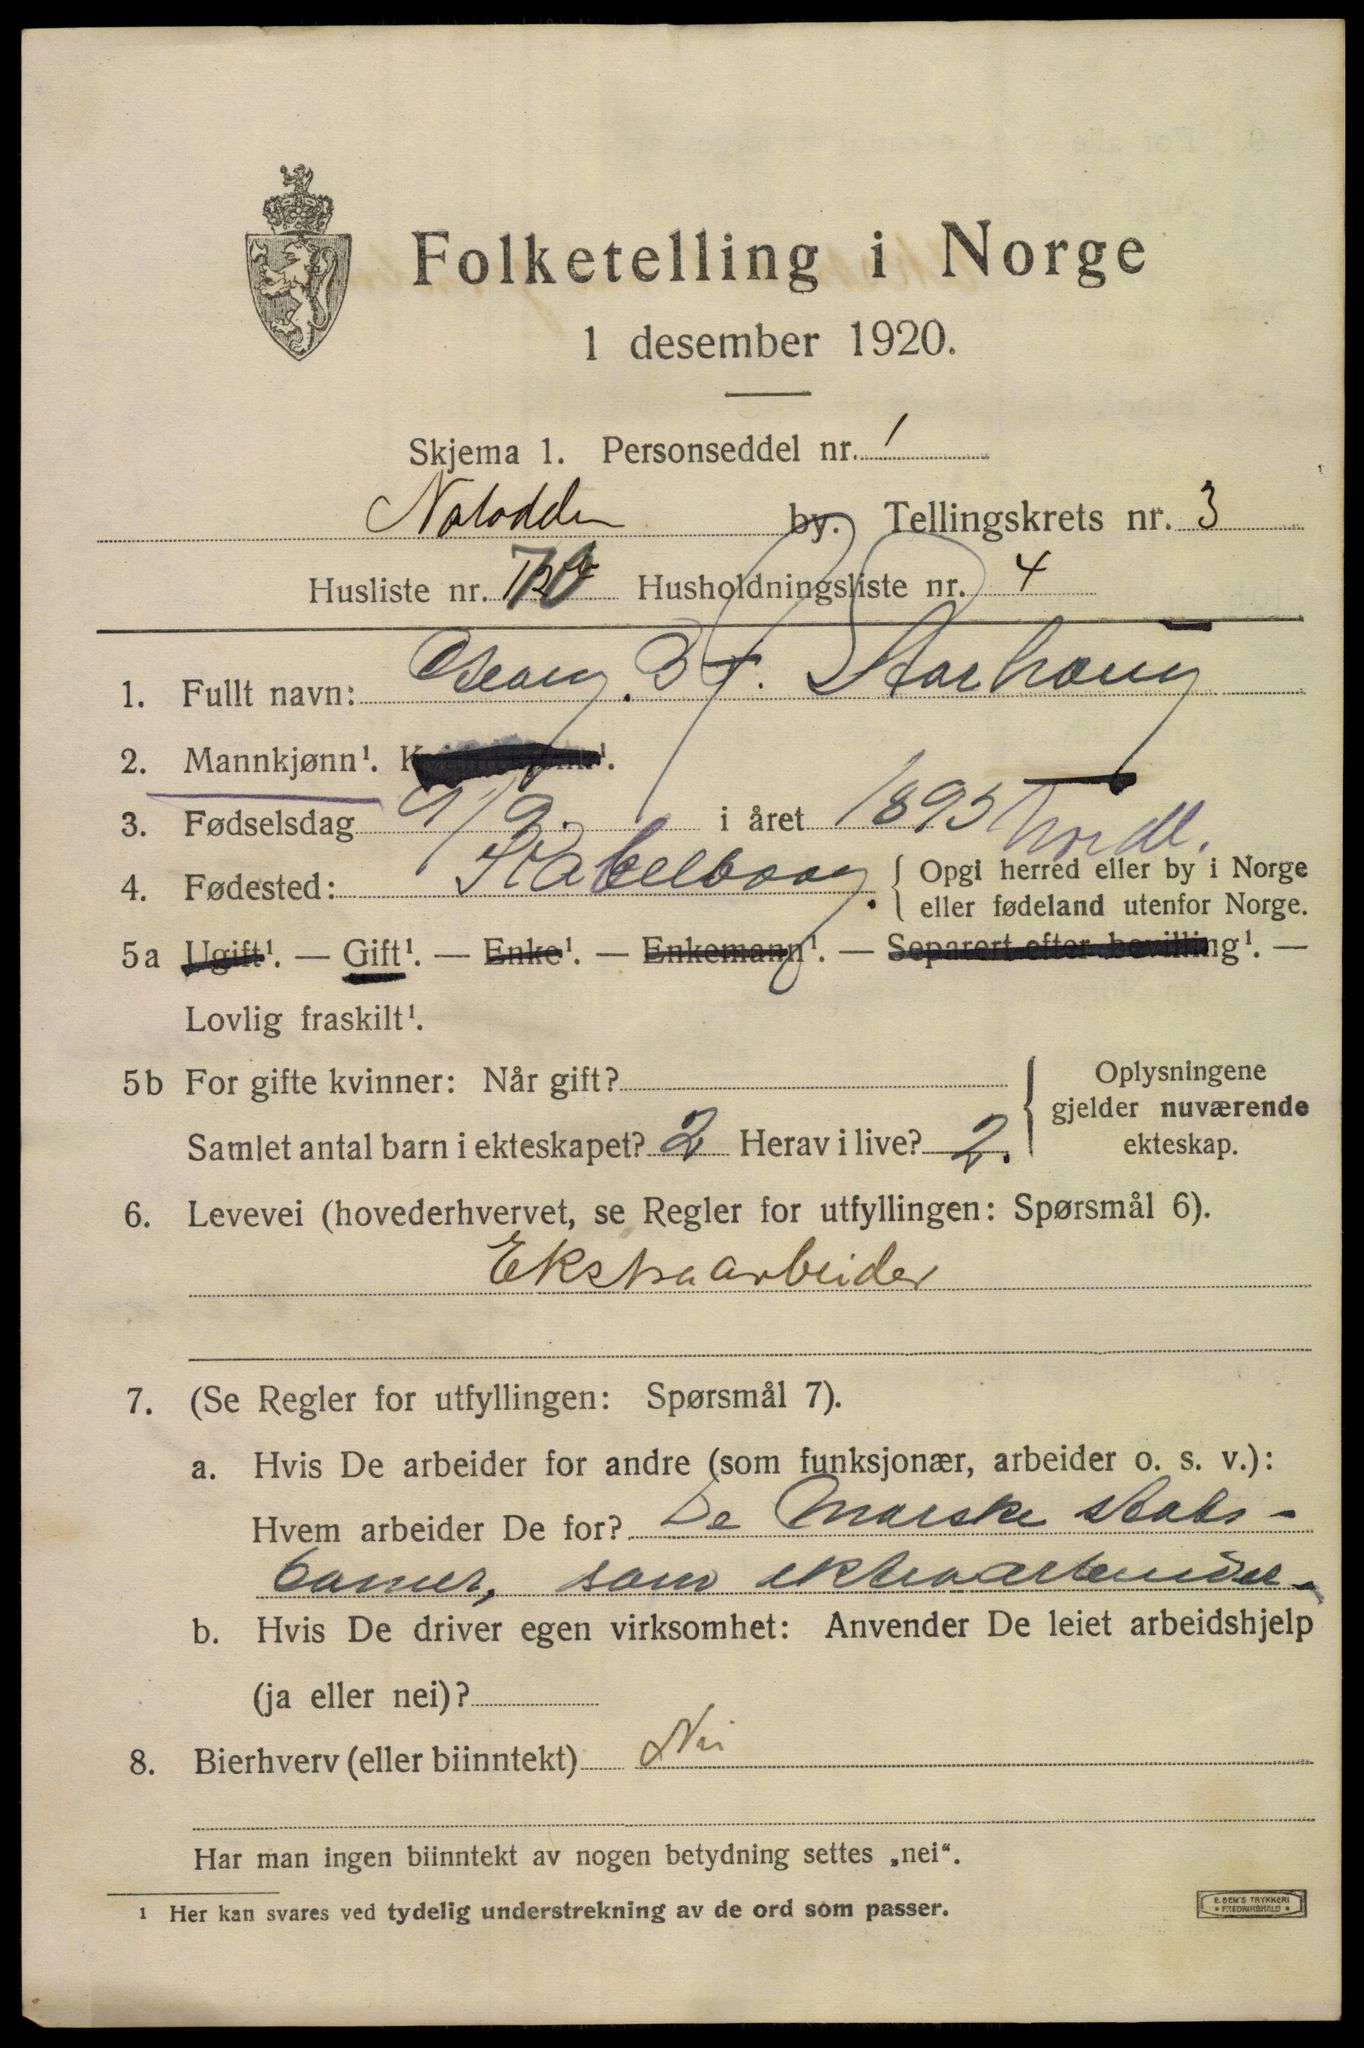 Folketelling i Norge
1 desember 1920.
Skjema 1. Personseddel nr. 1
Notodden by. Tellingskrets nr. 3
Husliste nr. 70 Husholdningsliste nr. 4
1. Fullt navn: Georg
2. Mannkjønn¹. Kvinnekjønn¹.
3. Fødselsdag 9/9 i året 1895
4. Fødested: { Opgi herred eller by i Norge
eller fødeland utenfor Norge.
5a Ugift¹. — Gift¹. — Enke¹. — Enkemann¹. — Separert efter bevilling¹. —
Lovlig fraskilt¹.
5b For gifte kvinner: Når gift? { Oplysningene
gjelder nuværende
Samlet antal barn i ekteskapet? 2 Herav i live? 2. ekteskap.
6. Levevei (hovederhvervet, se Regler for utfyllingen: Spørsmål 6).
Ekstraarbeider
7. (Se Regler for utfyllingen: Spørsmål 7).
a. Hvis De arbeider for andre (som funksjonær, arbeider o. s. v.):
Hvem arbeider De for? De Norske stats-
baner, som ekstraarbeider.
b. Hvis De driver egen virksomhet: Anvender De leiet arbeidshjelp
(ja eller nei)?
8. Bierhverv (eller biinntekt) Nei
Har man ingen biinntekt av nogen betydning settes „nei“.
¹ Her kan svares ved tydelig understrekning av de ord som passer.
E. SEM'S TRYKKERI
• FREDRIKSHALD •